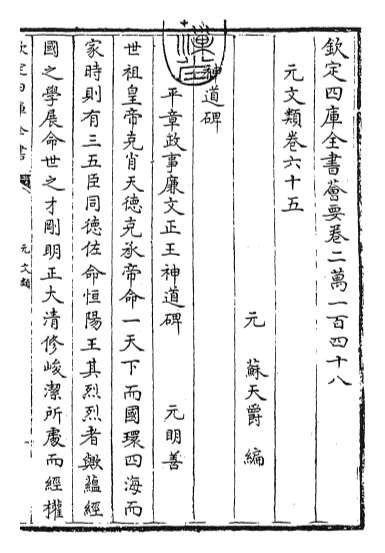 欽定四庫全書薈要卷二萬一百四十八
元文類卷六十五
元 蘇天爵 編
神道碑
平章政事廉文正王神道碑 元明善
世祖皇帝克肖天德克承帝命一天下而國環四海而
家時則有三五臣同德佐命恒陽王其烈烈者歟蘊經
國之學展命世之才剛明正大清修峻潔所處而經權
欽定四庫全書
元文類